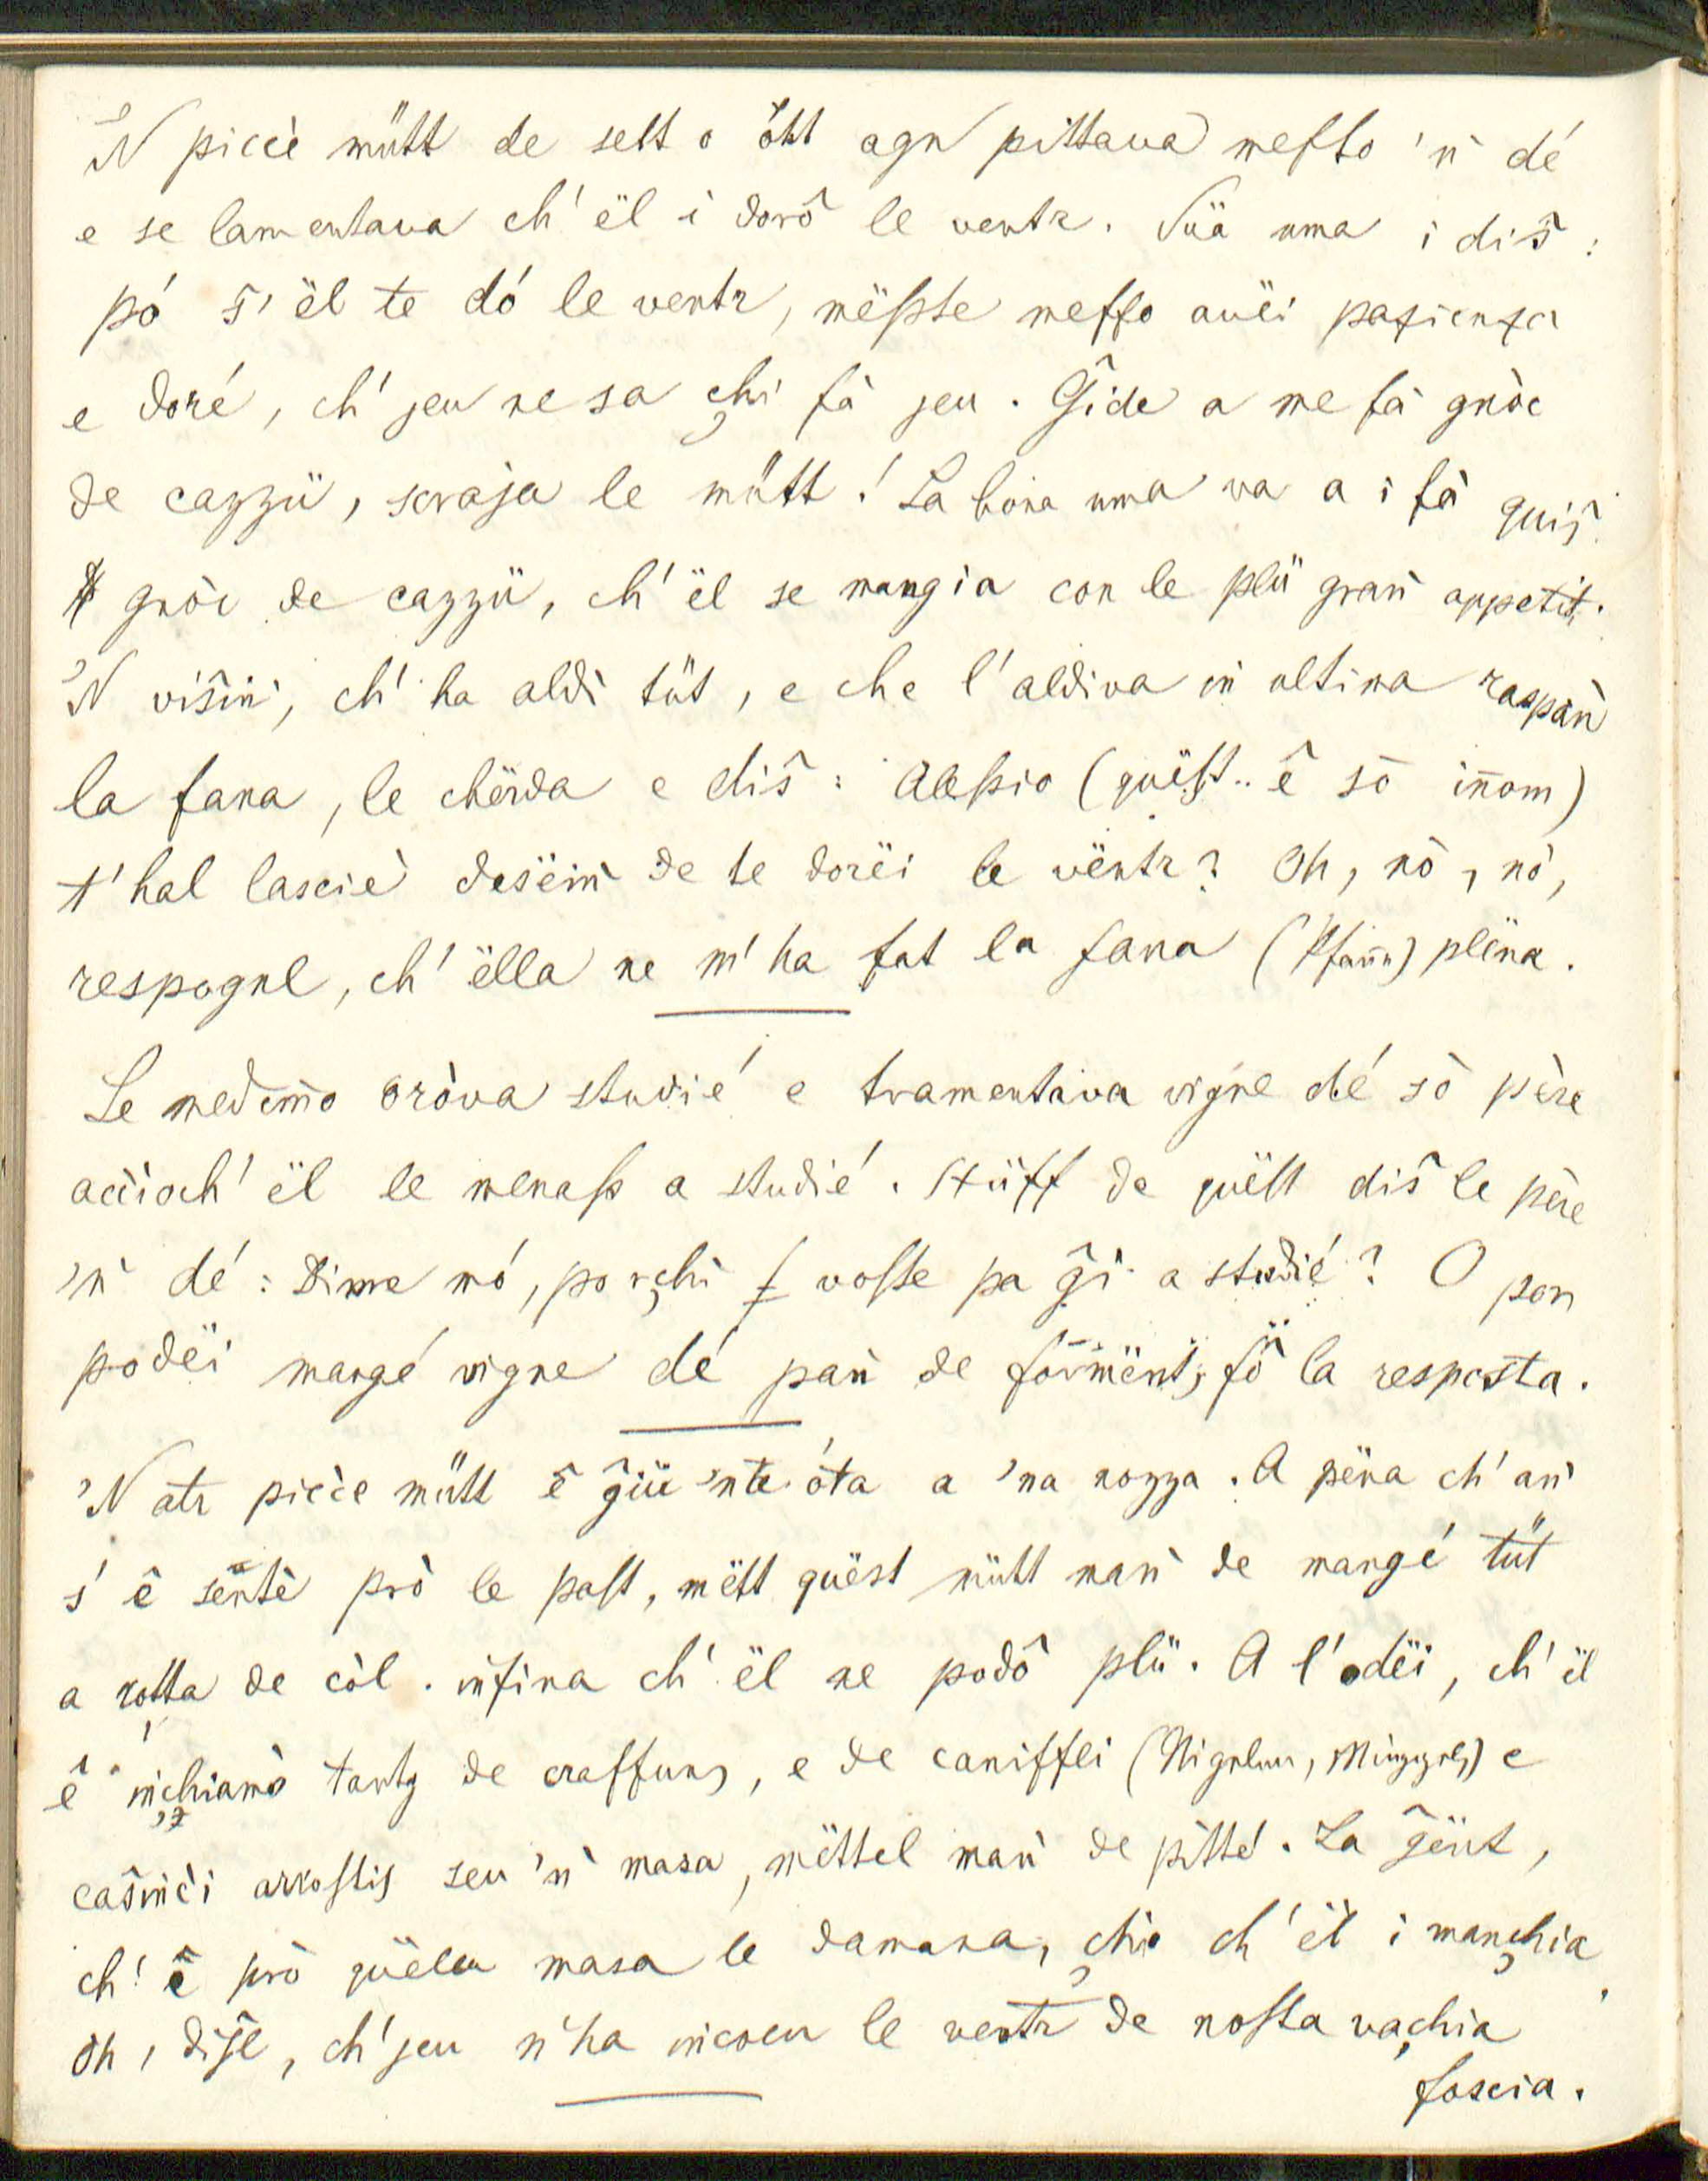 'N piccè mütt de sett o ött agn pittava messo 'ǹ dé
e se lamentava ch' ël i dorô le ventr. Süa uma i diŝ:
pó ŝ' ël te dó le ventr, mëßte messo avëi pazienza
e doré, ch' jeu ne sa chi fà jeu. Ĝide a me fà gnòc
de cazzü, scraja le mütt! La bona uma va a i fà quiŝ
gnòc de cazzü, ch' ël se mangia con le plü graǹ appetit.
'N viŝiǹ, ch' ha aldì tüt, e che l'aldiva iǹ ultima raspaǹ
la fana, le chërda e diŝ: Aleßio (quëst.. ê sò inom)
t' hal lasciè desëiǹ de te dorëi le vëntr? Oh, nò, nò,
respognel, ch' ëlla ne m' ha fat la fana (Pfanne) plëna.
Le medemo oròva studié e tramentava vigne dé sò père
accioch' ël le menaß a studié. Stüff de quëst diŝ le père
'ǹ dé: Dimme mó, porchi voste pa ĝì a studié? O por
podëi mangé vigne dé paǹ de formënt, fö la resposta.
'N atr piccè mütt ê ĝüü 'nte óta a 'na nozza. A pëna ch' aǹ
s' ê sentè prò le past, mëtt quëst mütt maǹ de mangé tüt
a rotta de còl. iǹfina ch' ël ne podô plü. A l'odëi, ch' ël
ê iǹchiamò tantg de craffung, e de caniffli (Nigelen, ) e
caŝiǹci arrostis seu 'ǹ masa, mëttel maǹ de pitté. La ĝënt,
ch' ê prò quëlla masa le damana, chi ch' ël i manchia,
Oh, diŝel, ch' jeu n' ha iǹcoeu le ventr de nosta vachia
foscia.